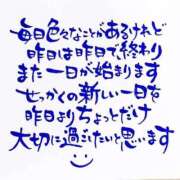 毎日色々なことがあるけれど
昨日は昨日で、終わり
また一日が始まります
せっかくの新しい一日を
昨日よりちょっとだけ
大切に過ごしたいと思います